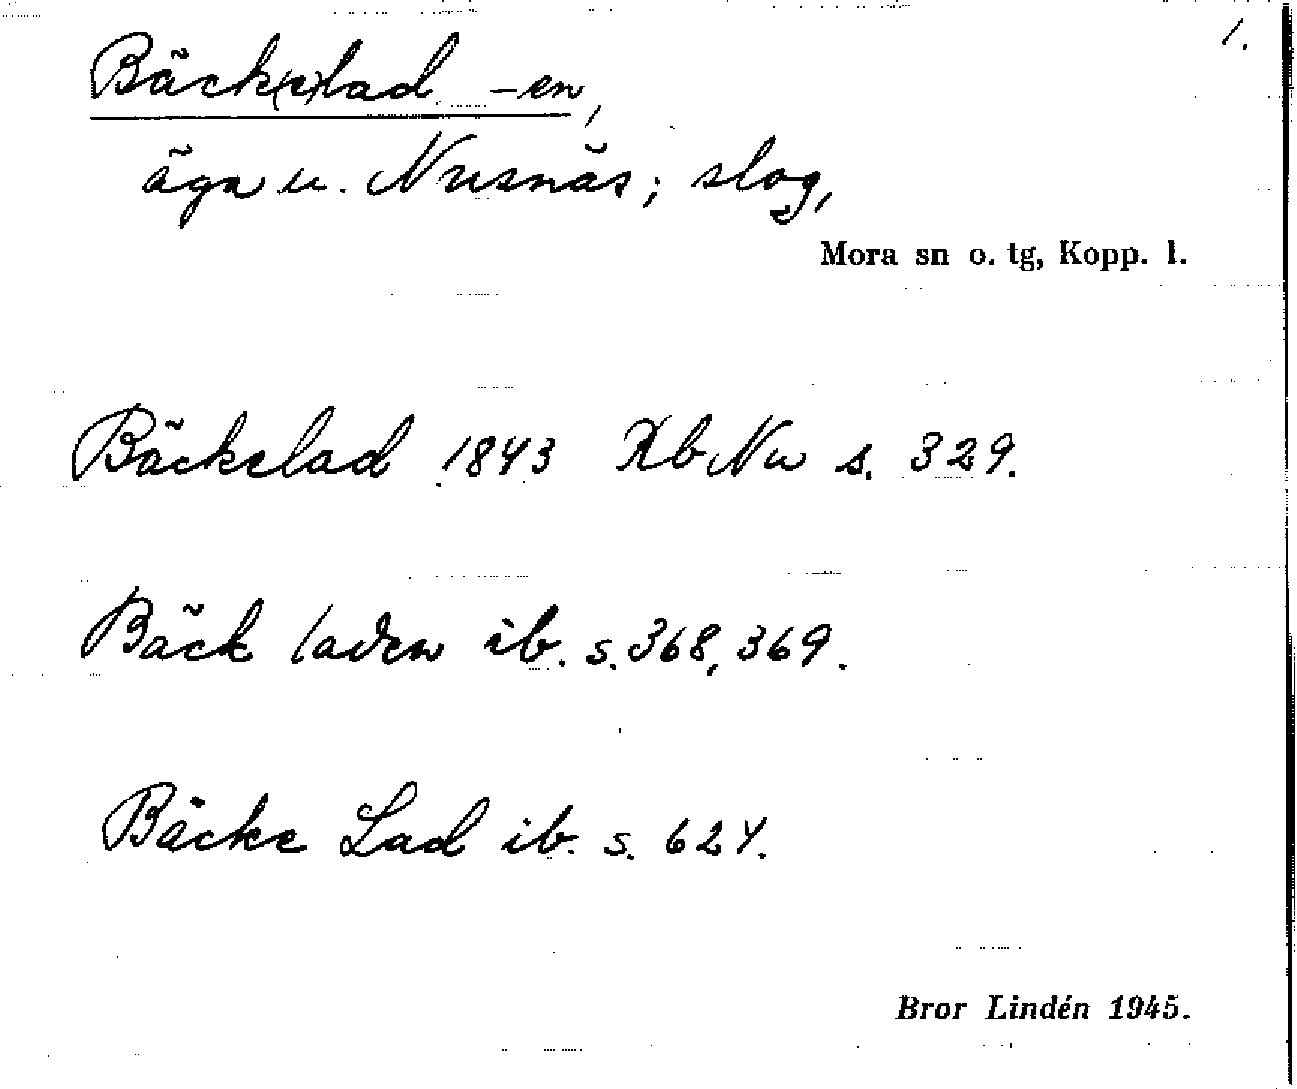 1.
Bäck(e)lad -en,
äga u. Nusnäs; slog,
Mora sn o. tg, Kopp. l.
Bäckelad 1843 XbNu s. 329.
Bäck laden ib. s. 368, 369.
Bäcke Lad ib. s. 624.
Bror Lindén 1945.